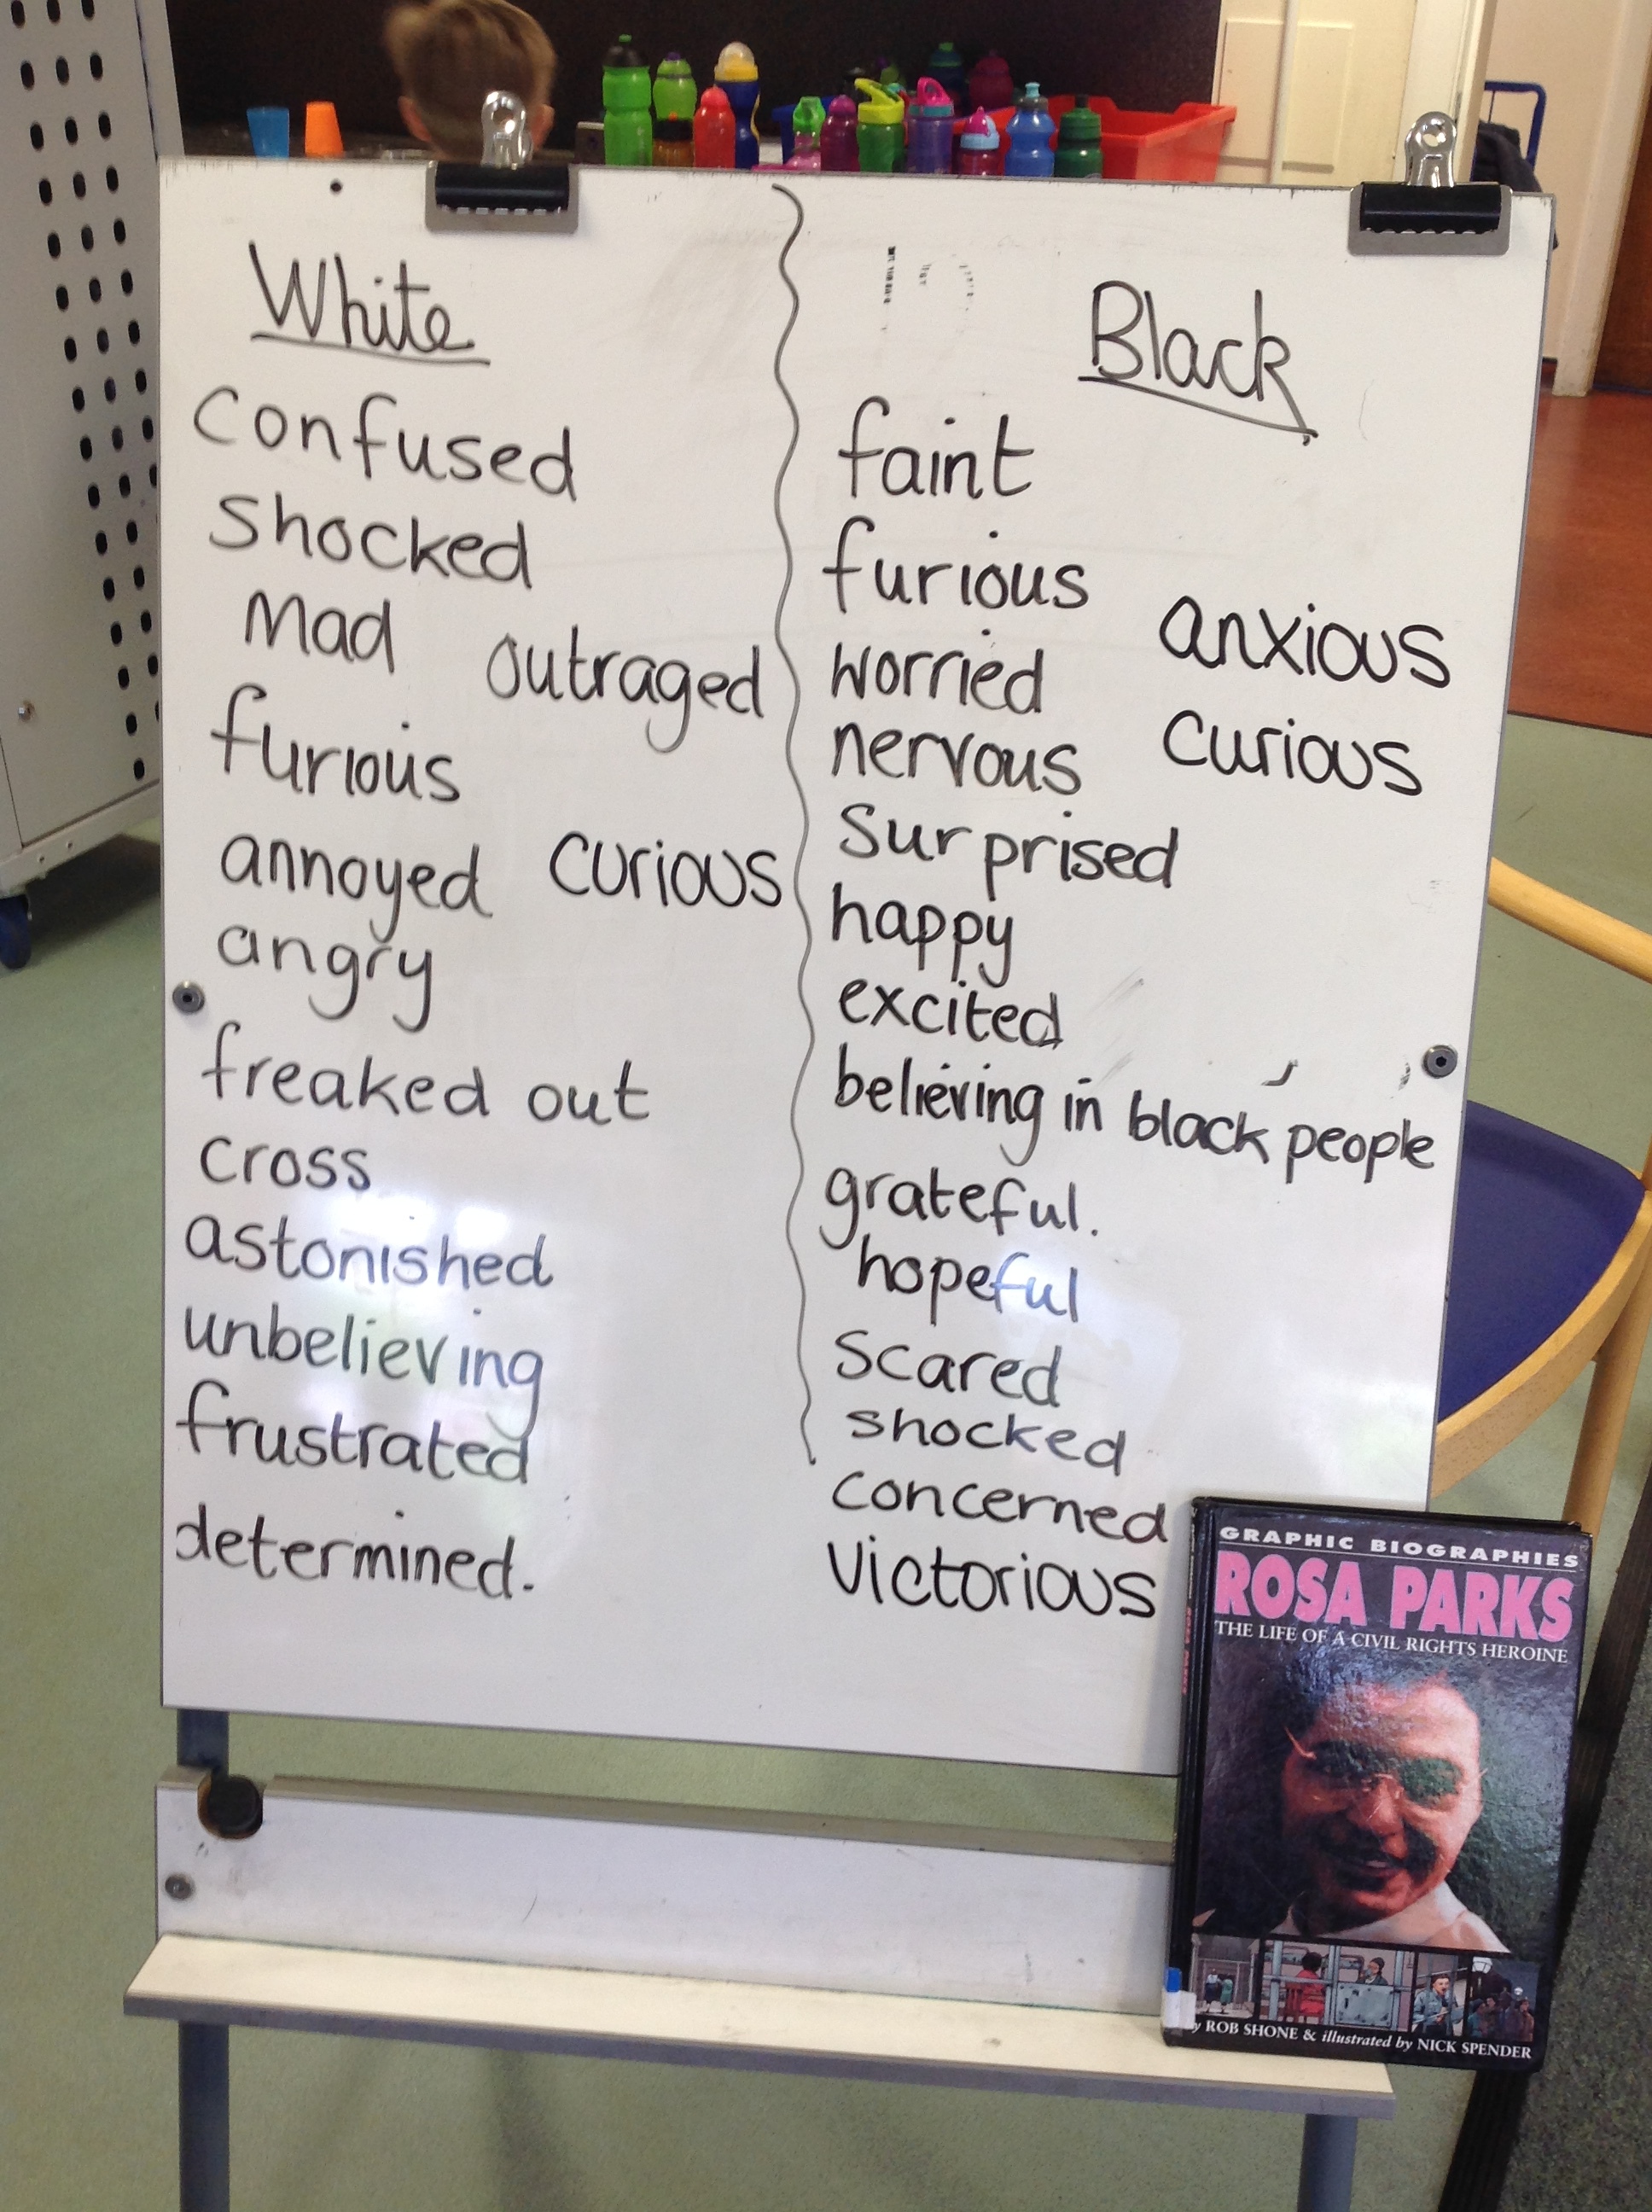 White
confused
shocked
Mad
outraged
furious
annoyed
curious
angry
freaked out
cross
astonished
unbelieving
frustrated
determined.
Black
faint
furious
anxious
worried
nervous
curious
surprised
happy
excited
believing in black people
grateful.
hopeful
scared
shocked
concerned
victorious
GRAPHIC BIOGRAPHIES
ROSA PARKS
THE LIFE OF A CIVIL RIGHTS HEROINE
by ROB SHONE & illustrated by NICK SPENDER